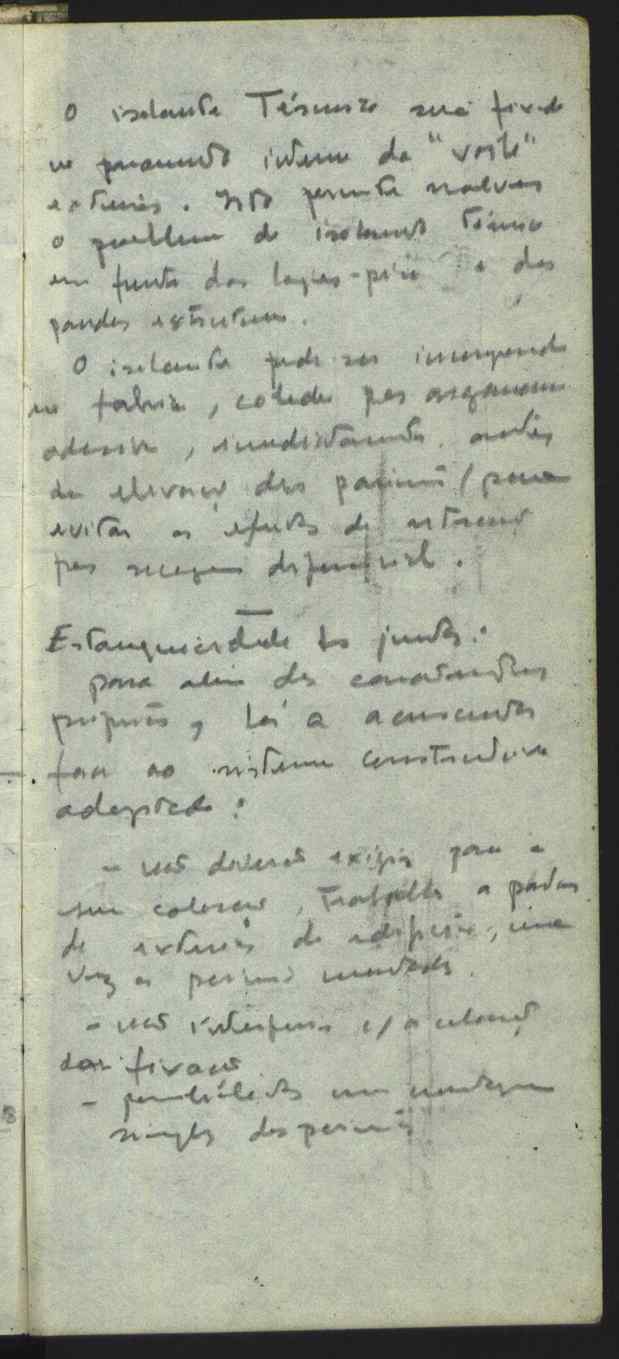 O isolante Térmico será fixado
no paramento interno da "vaste"
exterior. Isto permite resolver
o problema do isolamento térmico
em frente das lages-piso e das
grandes estruturas.
O isolante pode ser incorporado
na fabrica, colado por argamassa
adesiva, imediatamente antes
da elevação dos paineis / para
evitar os efeitos de retração
por secagem diferencial.
Estanqueidade das juntas:
para alem das caracteristicas
proprias, há a acrescentar
face ao sistema construtivo
adoptado:
- não deverão exigir para a
sua colocação, trabalho a partir
do exterior do edificio, uma
vez os paineis montados.
- não interferir c/ a colocação
das fixações
- possibilitar uma montagem
simples dos paineis
8